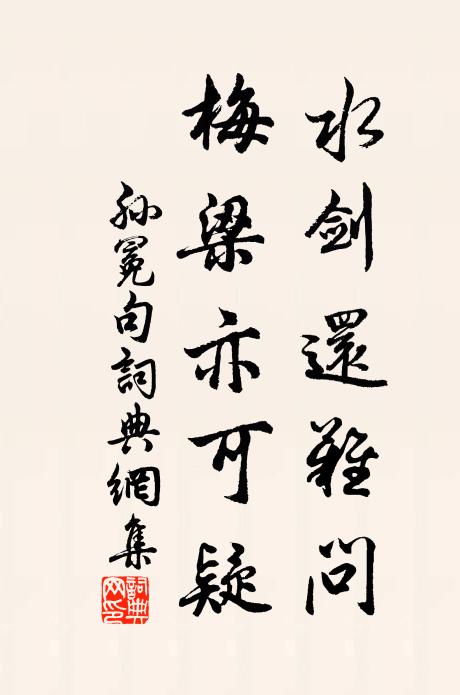 水剑還難問
梅梁亦可疑
孙冕句詞典網集
詞典网印